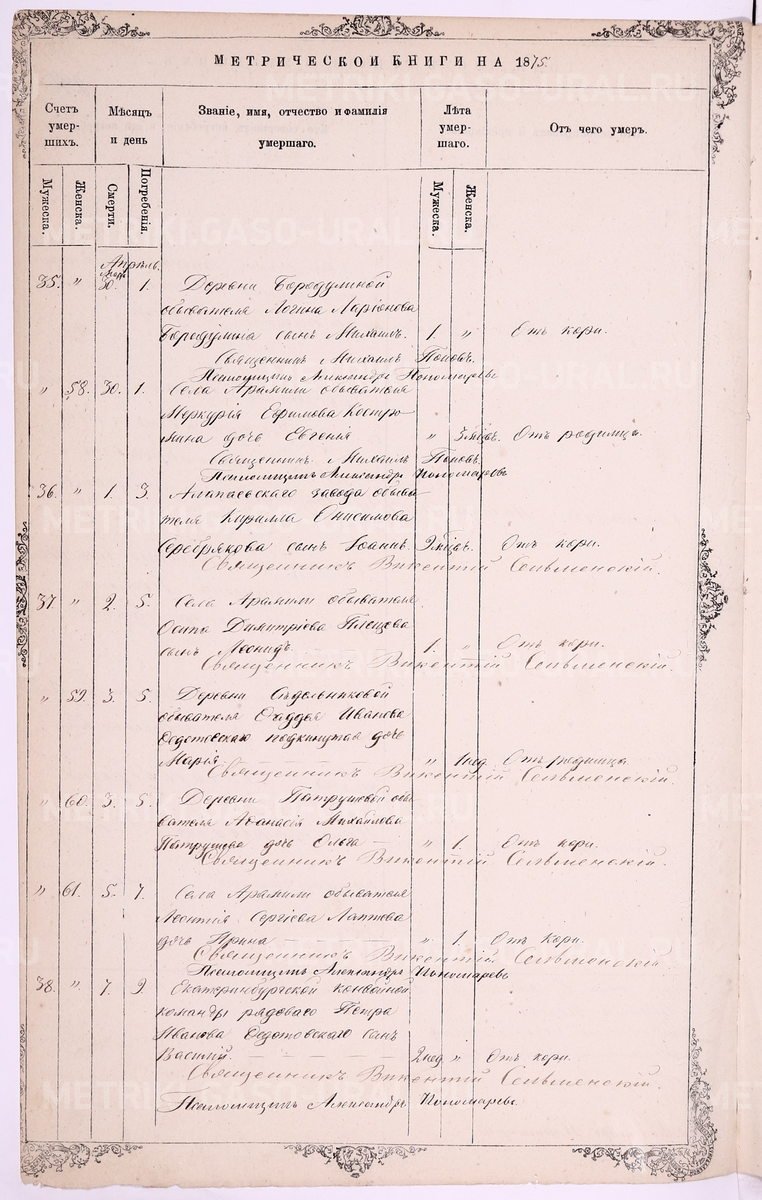 МЕТРИЧЕСКОЙ КНИГИ НА 1875.
Счетъ умер- шихъ.
Мѣсяцъ и день
Званіе, имя, отчество и фамилія умершаго.
Лѣта умер- шаго.
Отъ чего умеръ.
Мужеска.
Женска.
Смерти.
Погребенія.
Мужеска.
Женска.
Апрѣль.
Мар.
35. " 30. 1. Деревни Бородулиной
обывателя Логина Ларіонова
Бородулина сынъ Михаилъ. 1. " Отъ кори.
Священникъ Михаилъ Поповъ.
Псаломщикъ Александръ Пономаревъ
" 58. 30. 1. Села Арамили обывателя
Меркурья Ефимова Костро-
мина дочь Евгенія " 3 мѣсв. Отъ родимца.
Священникъ Михаилъ Поповъ.
Псаломщикъ Александръ Пономаревъ
36. " 1. 3. Алапаевскаго завода обыва-
теля Кирилла Онисимова
Серебрякова сынъ Іоаннъ. 9 мѣсв. Отъ кори.
Священникъ Викентій Сельменскій.
37. " 2. 5. Села Арамили обывателя
Осипа Димитріева Плещева
сынъ Леонидъ. 1. " Отъ кори.
Священникъ Викентій Сельменскій.
" 59. 3. 5. Деревни Сѣдельниковой
обывателя Фаддея Иванова
Федотовскаго подкинутая дочь
Марія " 1 нед. Отъ родимца.
Священникъ Викентій Сельменскій.
" 60. 3. 5. Деревни Патрушевой обы-
вателя Афанасія Михайлова
Патрушева дочь Ольга " 1. Отъ кори.
Священникъ Викентій Сельменскій.
" 61. 5. 7. Села Арамили обывателя
Леонтія Сергіева Лаптева
дочь Ирина " 1. Отъ кори.
Священникъ Викентій Сельменскій.
Псаломщикъ Александръ Пономаревъ
38. " 7. 9. Екатеринбургской конвойной
команды рядоваго Петра
Иванова Федотовскаго сынъ
Василій. 2 нед. " Отъ кори.
Священникъ Викентій Сельменскій.
Псаломщикъ Александръ Пономаревъ